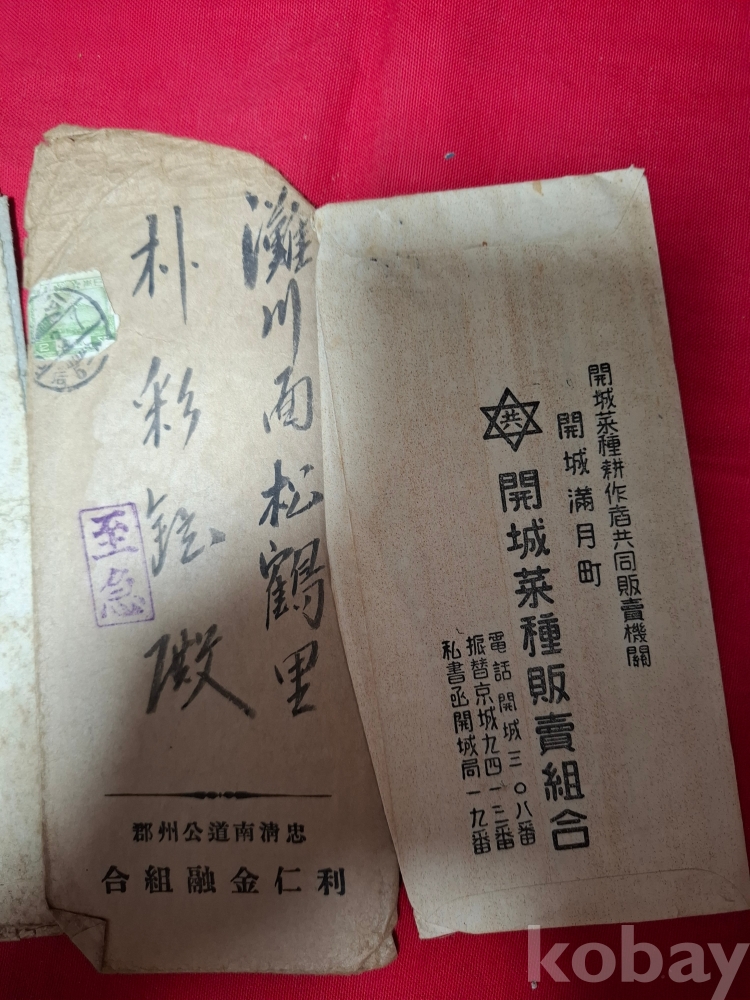 灘川面松鶴里
朴彩鉉殿
至急
忠淸南道公州郡
利仁金融組合
開城菜種耕作者共同販賣機關
開城滿月町
共
開城菜種販賣組合
電話開城三〇八番
振替京城九四一三番
私書函開城局一九番
kobay